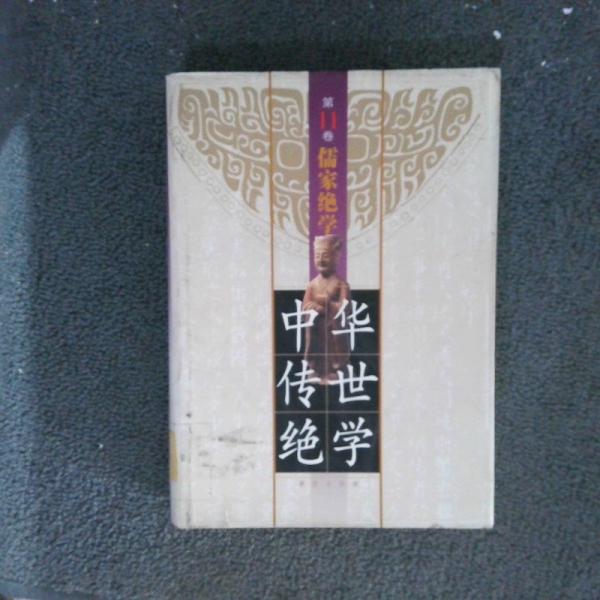 第
11
卷
儒家绝学
中华
传世
绝学